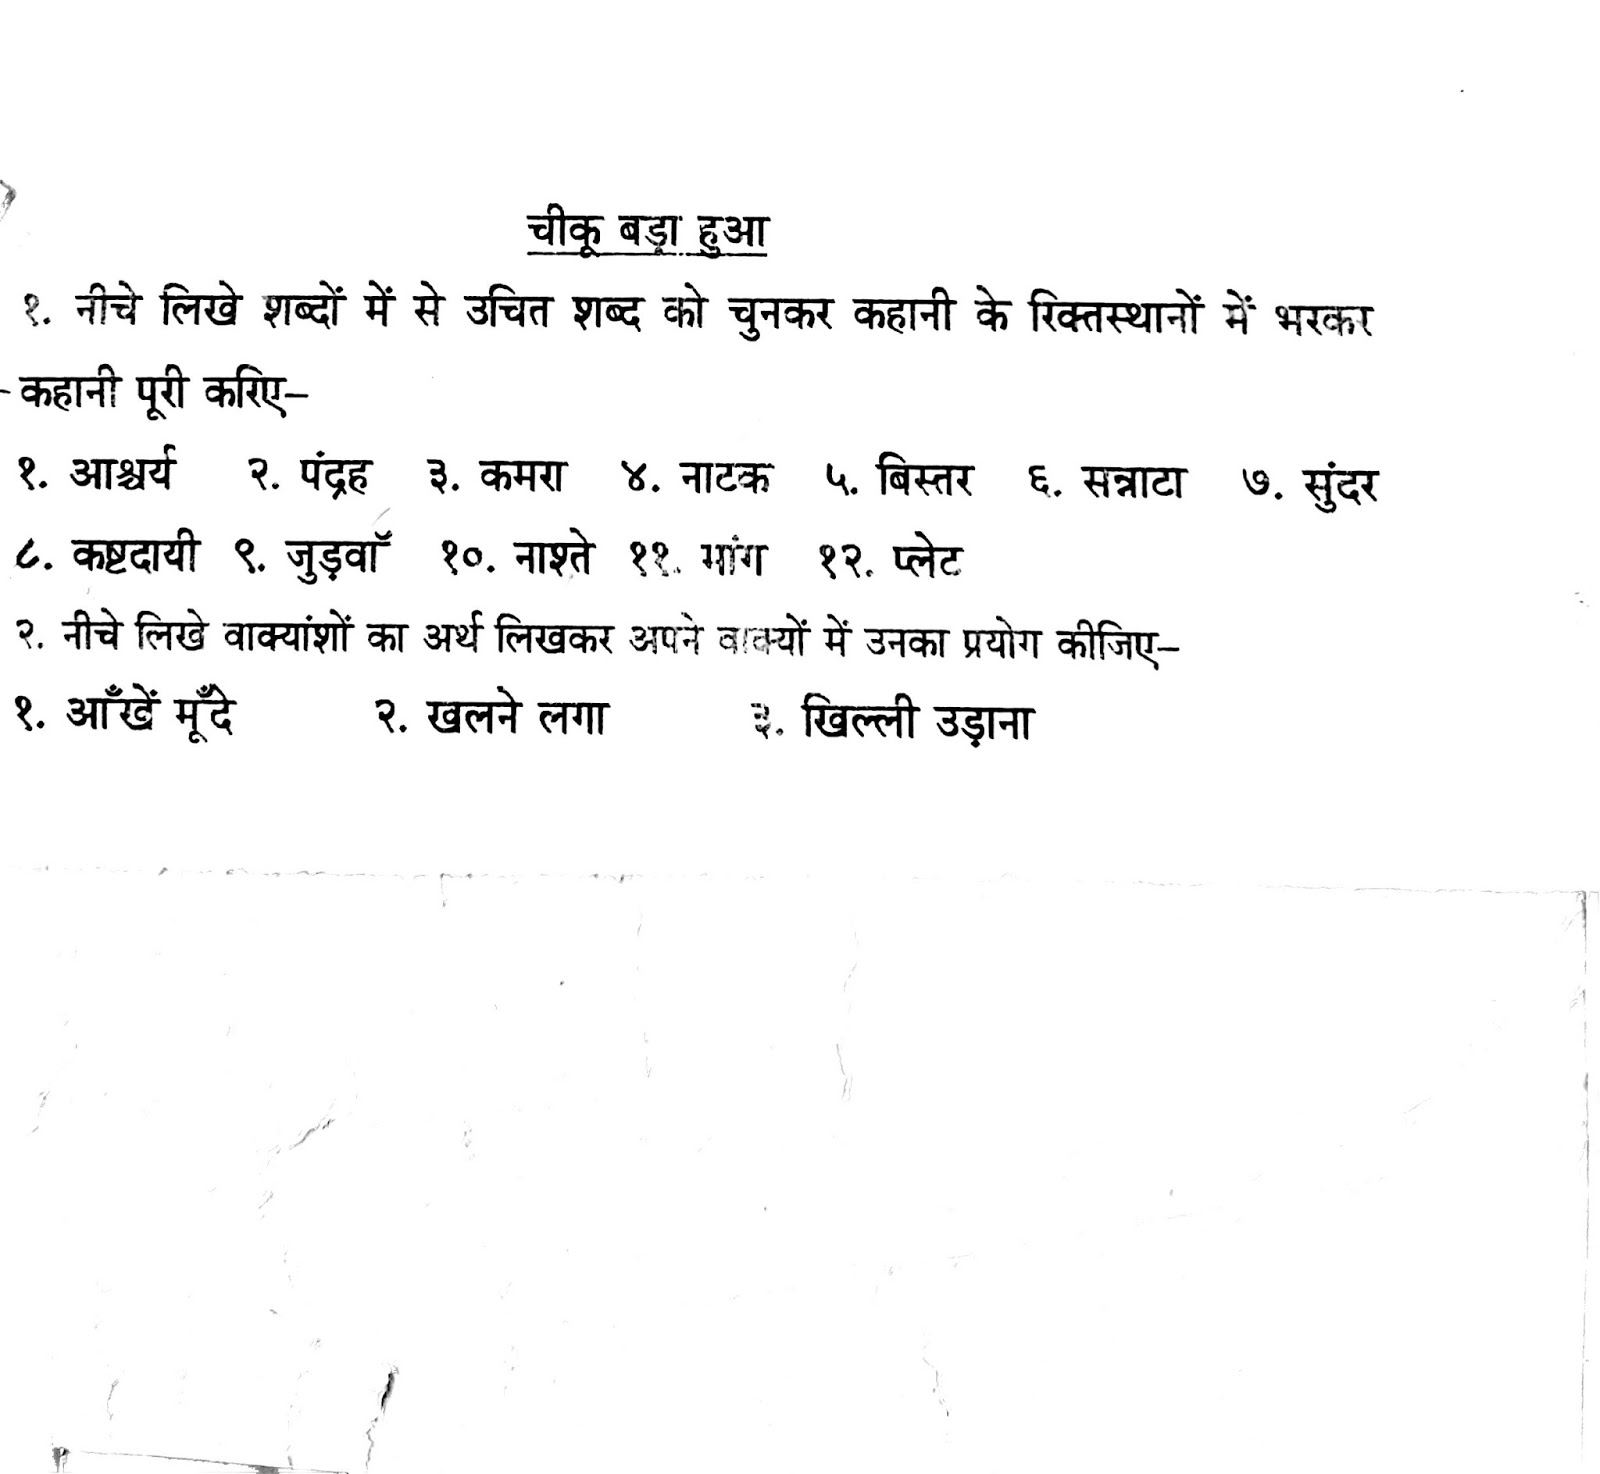 चीकू बड़ा हुआ
१. नीचे लिखे शब्दों में से उचित शब्द को चुनकर कहानी के रिक्तस्थानों में भरकर
-कहानी पूरी करिए–
१. आश्चर्य २. पंद्रह ३. कमरा ४. नाटक ५. बिस्तर ६. सन्नाटा ७. सुंदर
८. कष्टदायी ९. जुड़वाॅं १०. नाश्ते ११. मांग १२. प्लेट
२. नीचे लिखे वाक्यांशों का अर्थ लिखकर अपने वाक्यों में उनका प्रयोग कीजिए–
१. आँखें मूँदे २. खलने लगा ३. खिल्ली उड़ाना